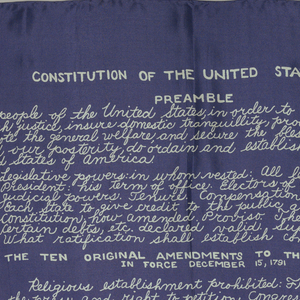 CONSTITUTION OF THE UNITED STA
PREAMBLE
people of the United States, in order to
h justice, insure domestic tranquillity, prov
ote the general welfare and secure the bless
our posterity, do ordain and establish
d States of America
legislative powers: in whom vested: All
President: his term of office: Electors of
Judicial powers. Tenure. Compensation
Each State to give credit to the public a
Constitution, how amended. Proviso.
ertain debts, etc. declared valid,
What ratification shall establish con
THE TEN ORIGINAL AMENDMENTS TO TH
IN FORCE DECEMBER 15, 1791
Religious establishment prohibited. F
right to petition